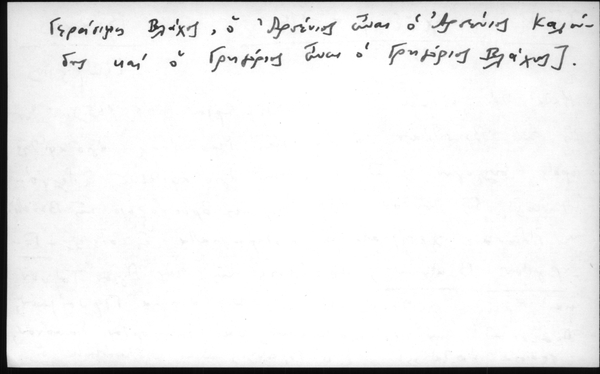 Γεράσιμος Βλάχος, ὁ Ἀρσένιος εἶναι ὁ Ἀρσένιος Καλού-
δης καί ὁ Γρηγόριος εἶναι ὁ Γρηγόριος Βλάχος].